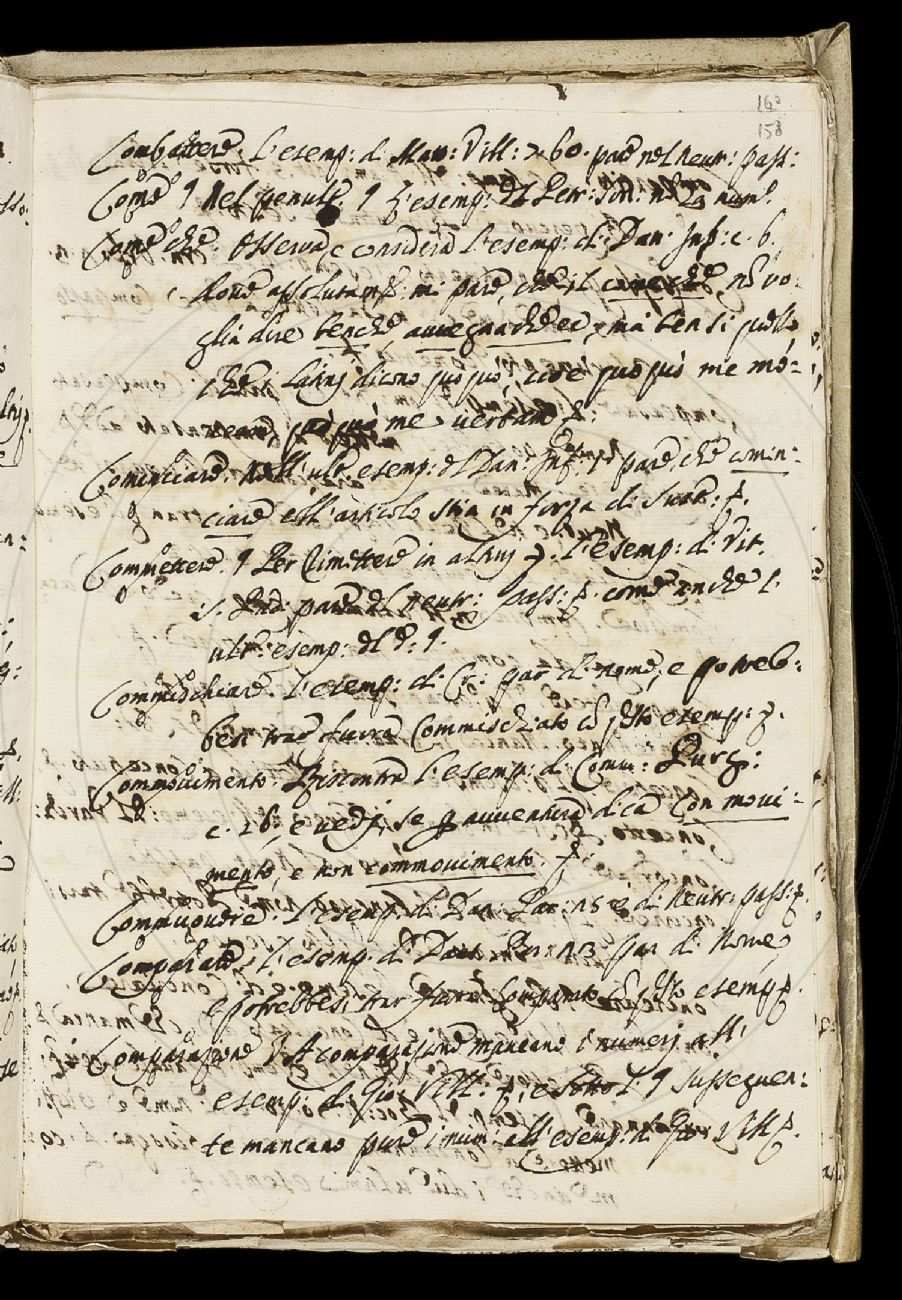 160
158
Combattere. L'esemp: di Matt: Vill: 7. 60. pare nel neutr: pass:
Come ¶ Nel penult. ¶ l'esemp: del Petr: son: num.
Come che. Osserva, e considera l'esemp: di Dan. Inf: c. 6.
dove assolutam. mi pare, che il comeche, no vo=
glia dire benche, avvegnache ec, ma bensi quello
che i Latini dicono quoquo, cioè quoquo me mo=
veam, quoquo me vertam
Cominciare. Nell'ult. esemp: di Dan: Inf. pare che comin:
ciare coll'articolo stia in forza di Sust:
Commettere. ¶ Per Rimettere in altrui L'esemp: di Vit.
S. Pad: pare del neutr: pass: come anche l'
ult: esemp: del d: ¶.
Commischiare. L'esemp: di Cr: par di nome, e potreb:
besi trar fuora Commischiato co questo esemp:
Commovimento. Riscontra l'esemp: di Com: Purg:
c. 26, e vedi, se per avventura dica Con movi=
mento, e non commovimento.
Commuovere. L'esemp: di Dan: Par: 15 è di neutr: pass:
Comparare. L'esemp. di Dan Par: 23 par di Nome
e potrebbesi trar fuora Comparato co questo esemp
Comparazione ¶ A comparazione mancano i numeri all'
esemp: di Gio: Vill: e sotto l' ¶ susseguen:
te mancano pure i num: all'esemp: di Gio Vill